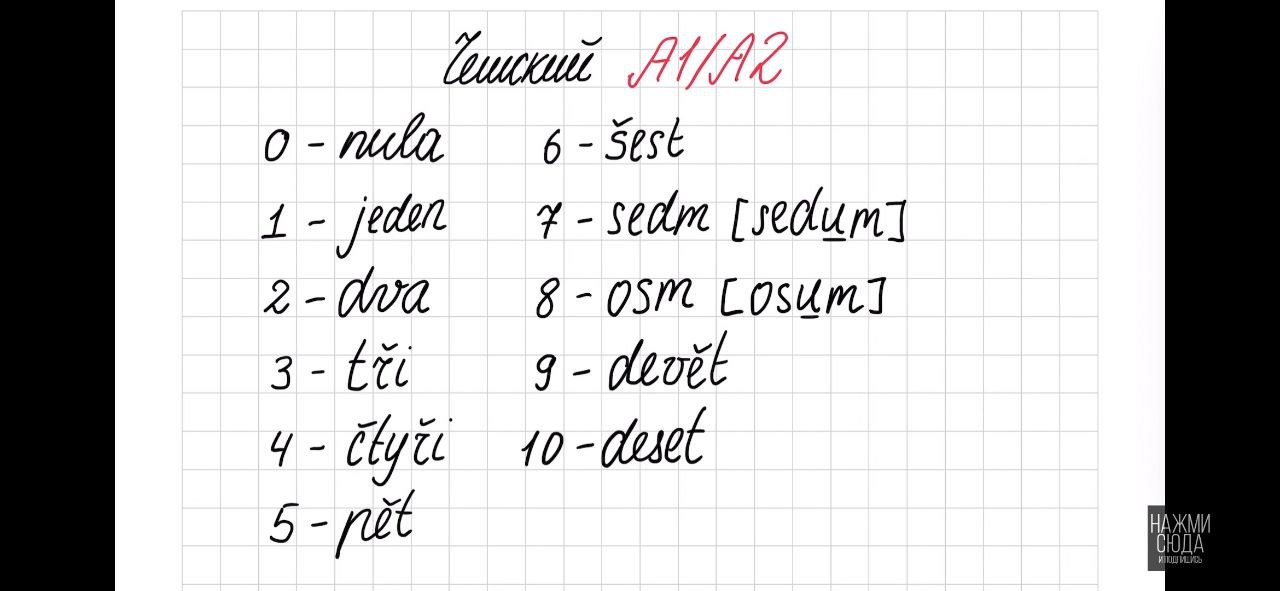 Чешский A1/A2
0 - nula
1 - jeden
2 - dva
3 - tři
4 - čtyři
5 - pět
6 - šest
7 - sedm [sedum]
8 - osm [osum]
9 - devět
10 - deset
НАЖМИ
СЮДА
И ПОДПИШИСЬ